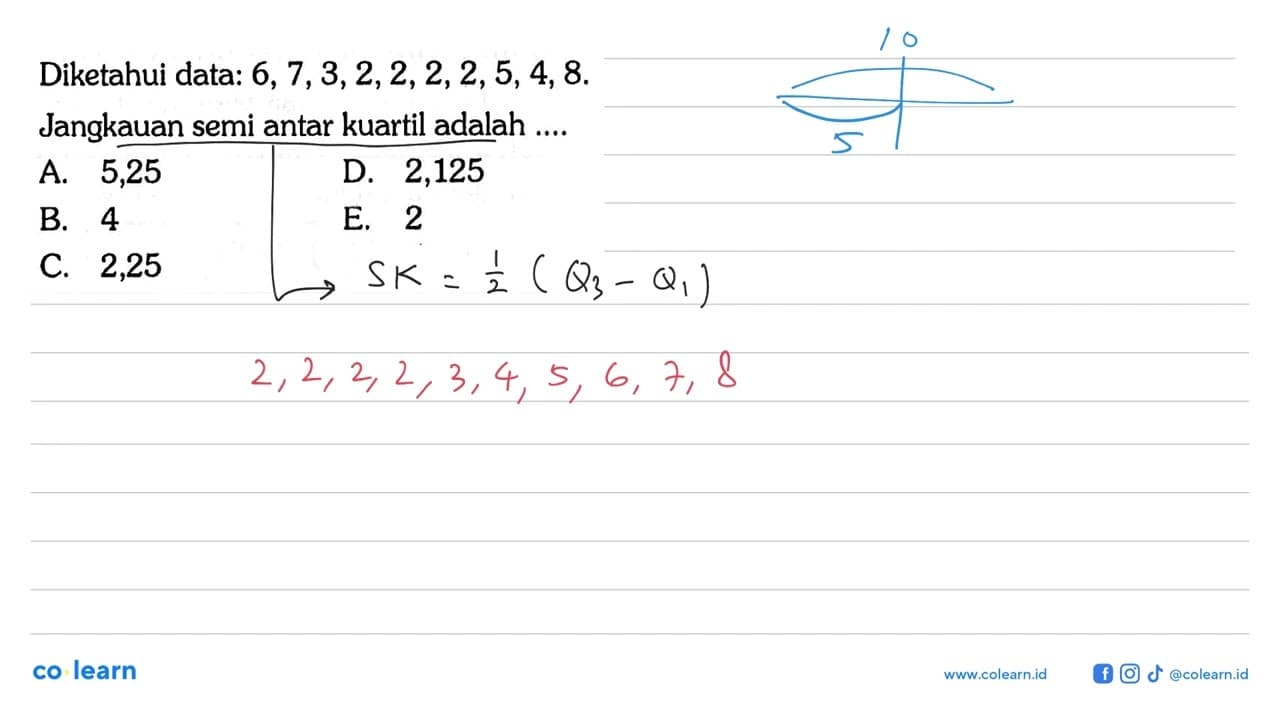 Diketahui data: 6, 7, 3, 2, 2, 2, 2, 5, 4, 8.
Jangkauan semi antar kuartil adalah ....
A. 5,25
B. 4
C. 2,25
D. 2,125
E. 2
10
5
SK = 1/2 (Q₃ - Q₁)
2, 2, 2, 2, 3, 4, 5, 6, 7, 8
co learn
www.colearn.id
@colearn.id